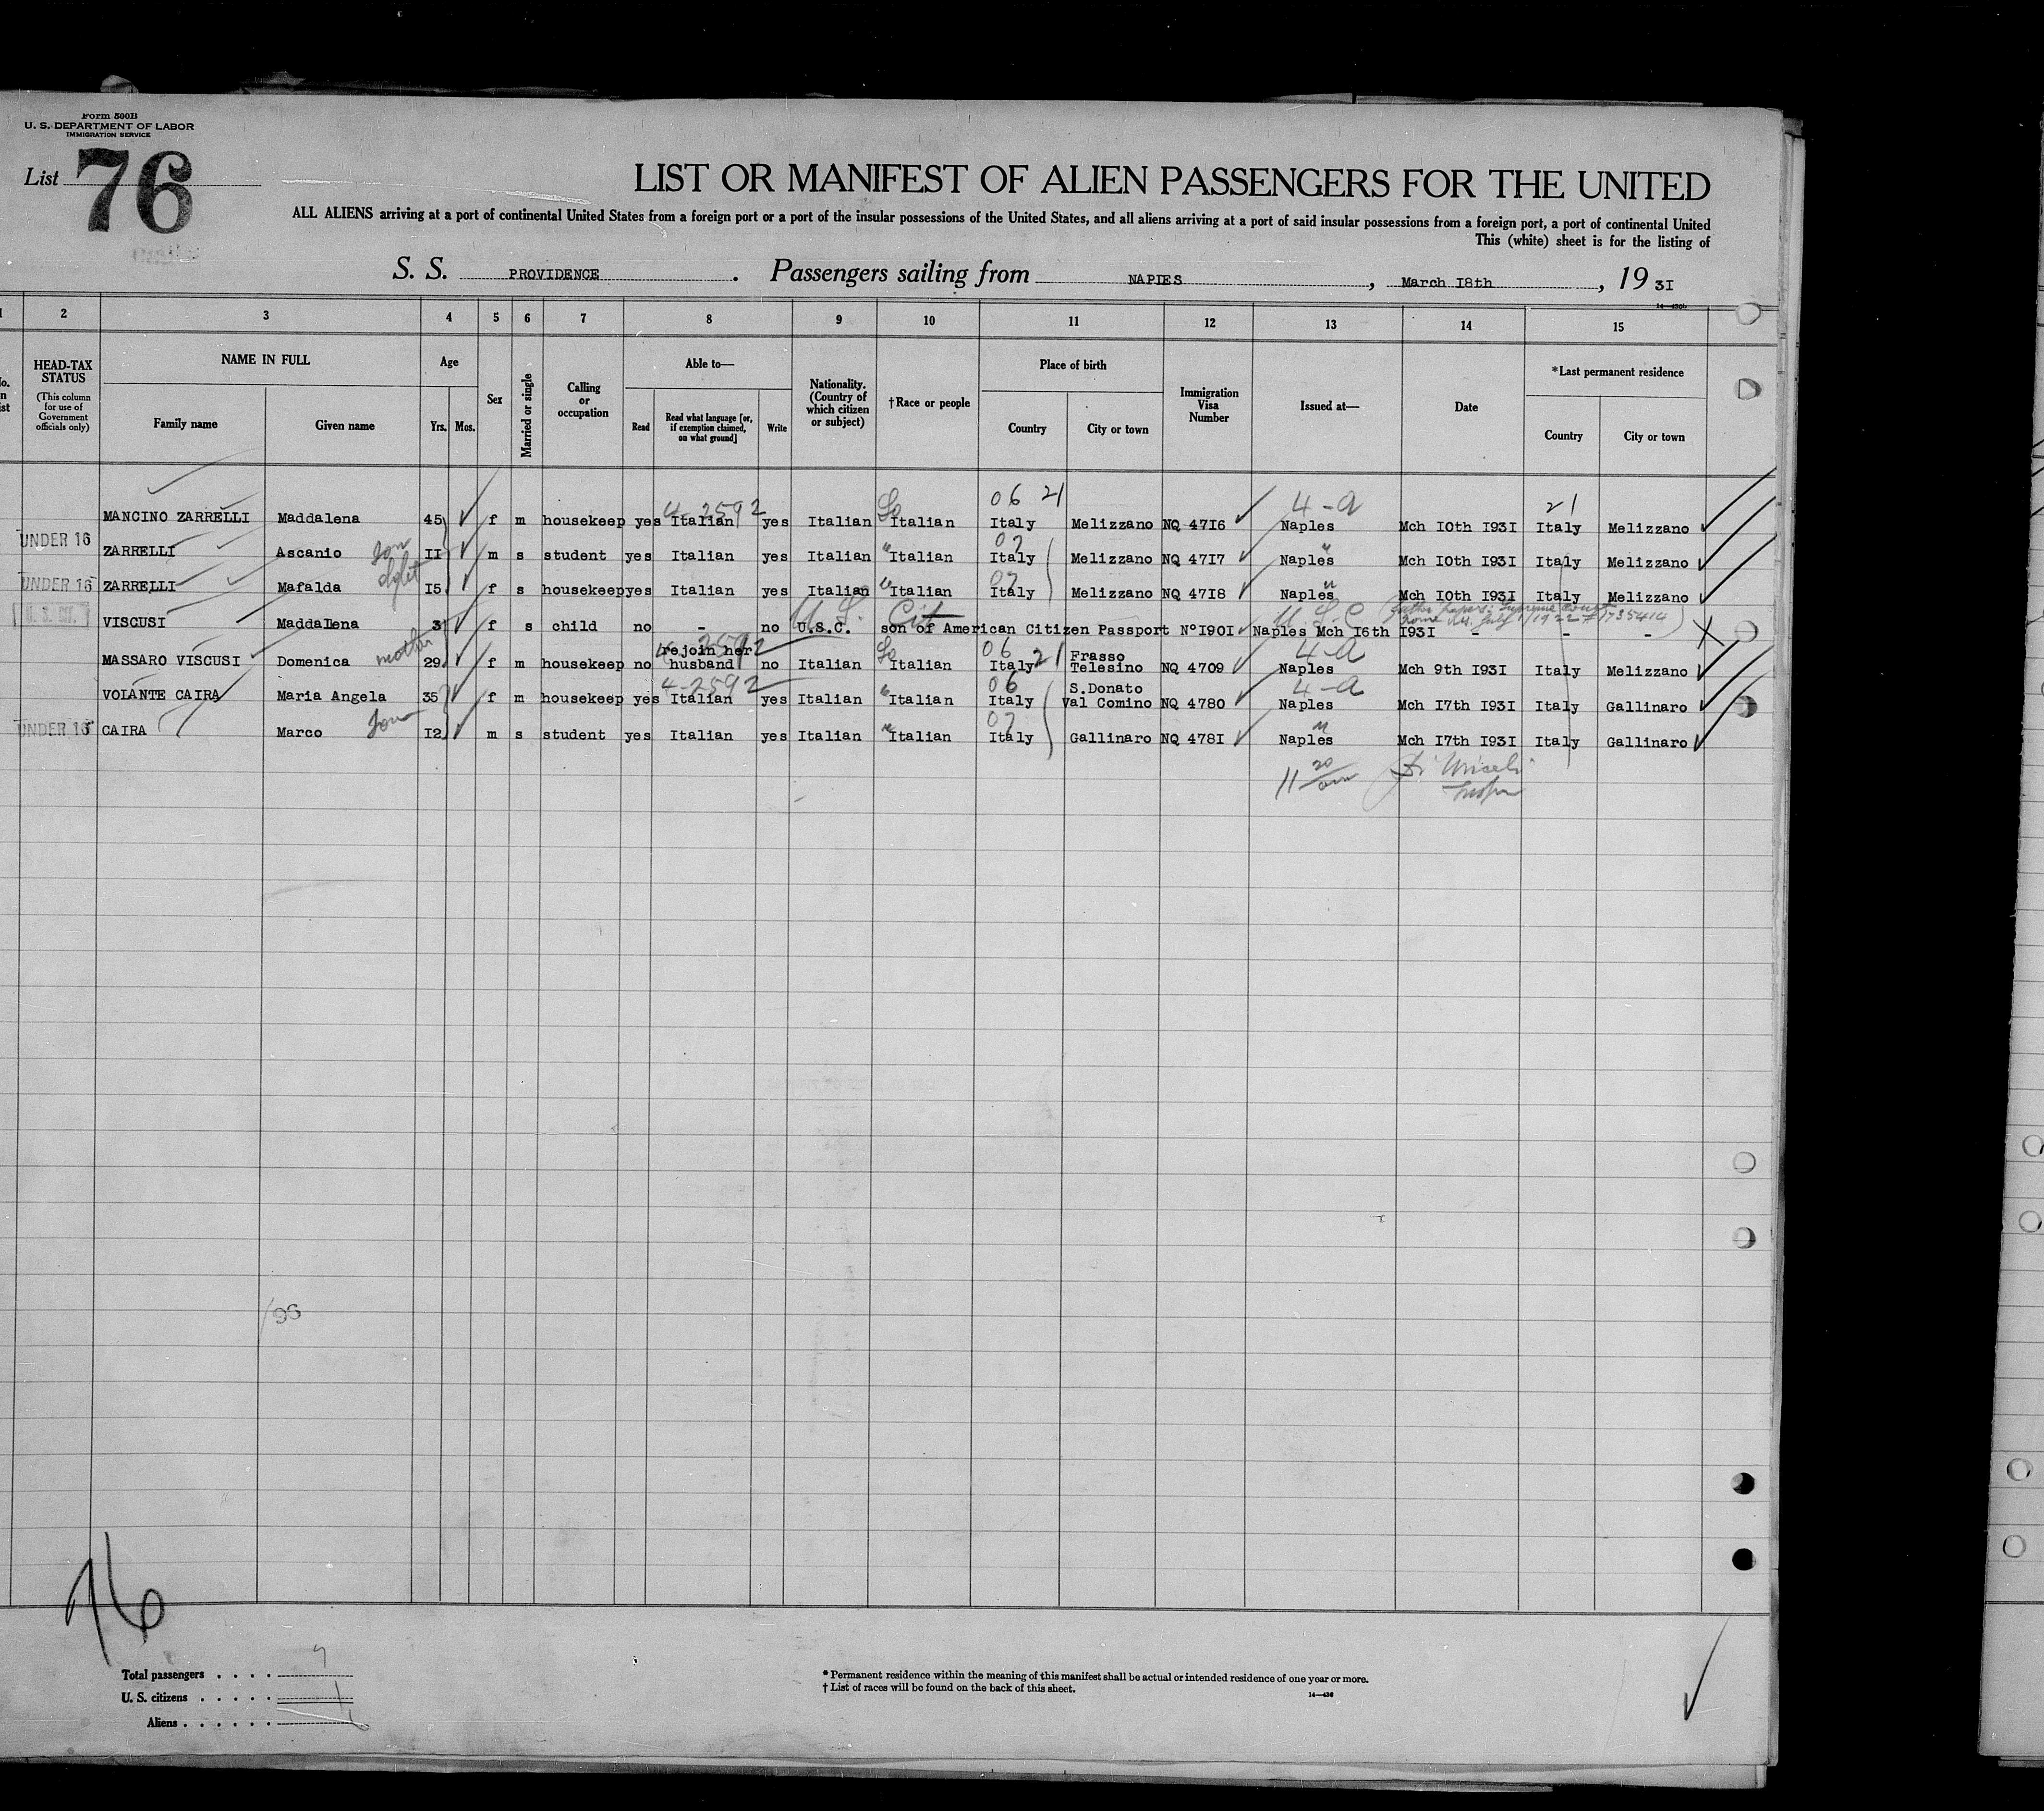 Form 500B
U. S. DEPARTMENT OF LABOR
IMMIGRATION SERVICE
List 76
LIST OR MANIFEST OF ALIEN PASSENGERS FOR THE UNITED
ALL ALIENS arriving at a port of continental United States from a foreign port or a port of the insular possessions of the United States, and all aliens arriving at a port of said insular possessions from a foreign port, a port of continental United
This (white) sheet is for the listing of
S. S. PROVIDENCE. Passengers sailing from NAPLES, March I8th, 19 3I
2 3 4 5 6 7 8 9 10 11 12 13 14 15
HEAD-TAX STATUS (This column for use of Government officials only)
NAME IN FULL Family name Given name
Age Yrs. Mos.
Sex
Married or single
Calling or occupation
Able to— Read Read what language [or, if exemption claimed, on what ground] Write
Nationality. (Country of which citizen or subject)
†Race or people
Place of birth Country City or town
Immigration Visa Number
Issued at—
Date
*Last permanent residence Country City or town
06 21 4-a 21
4-2592 So
MANCINO ZARRELLI Maddalena 45 f m housekeep yes Italian yes Italian Italian Italy Melizzano NQ 47I6 Naples Mch I0th I93I Italy Melizzano
UNDER 16 ZARRELLI Ascanio Son II m s student yes Italian yes Italian " Italian 07 Italy Melizzano NQ 47I7 " Naples Mch I0th I93I Italy Melizzano
UNDER 16 ZARRELLI Mafalda I5 f s housekeep yes Italian yes Italian " Italian 07 Italy Melizzano NQ 47I8 " Naples Mch I0th I93I Italy Melizzano
U. S. Cit. U. S. C
U. S. CIT. VISCUSI Maddalena 3 f s child no - no U.S.C. son of American Citizen Passport N° I90I Naples Mch I6th I93I - - -
4-2592 So 06 21 4-a
MASSARO VISCUSI Domenica mother 29 f m housekeep no rejoin her husband no Italian Italian Italy Frasso Telesino NQ 4709 Naples Mch 9th I93I Italy Melizzano
4-2592 06 4-a
VOLANTE CAIRA Maria Angela 35 f m housekeep yes Italian yes Italian " Italian Italy S.Donato Val Comino NQ 4780 Naples Mch I7th I93I Italy Gallinaro
UNDER 16 CAIRA Marco Son I2 m s student yes Italian yes Italian " Italian 07 Italy Gallinaro NQ 478I " Naples Mch I7th I93I Italy Gallinaro
11 20 am
76
Total passengers . . . . 7
U. S. citizens . . . . . 1
Aliens . . . . . . 6
* Permanent residence within the meaning of this manifest shall be actual or intended residence of one year or more.
† List of races will be found on the back of this sheet.